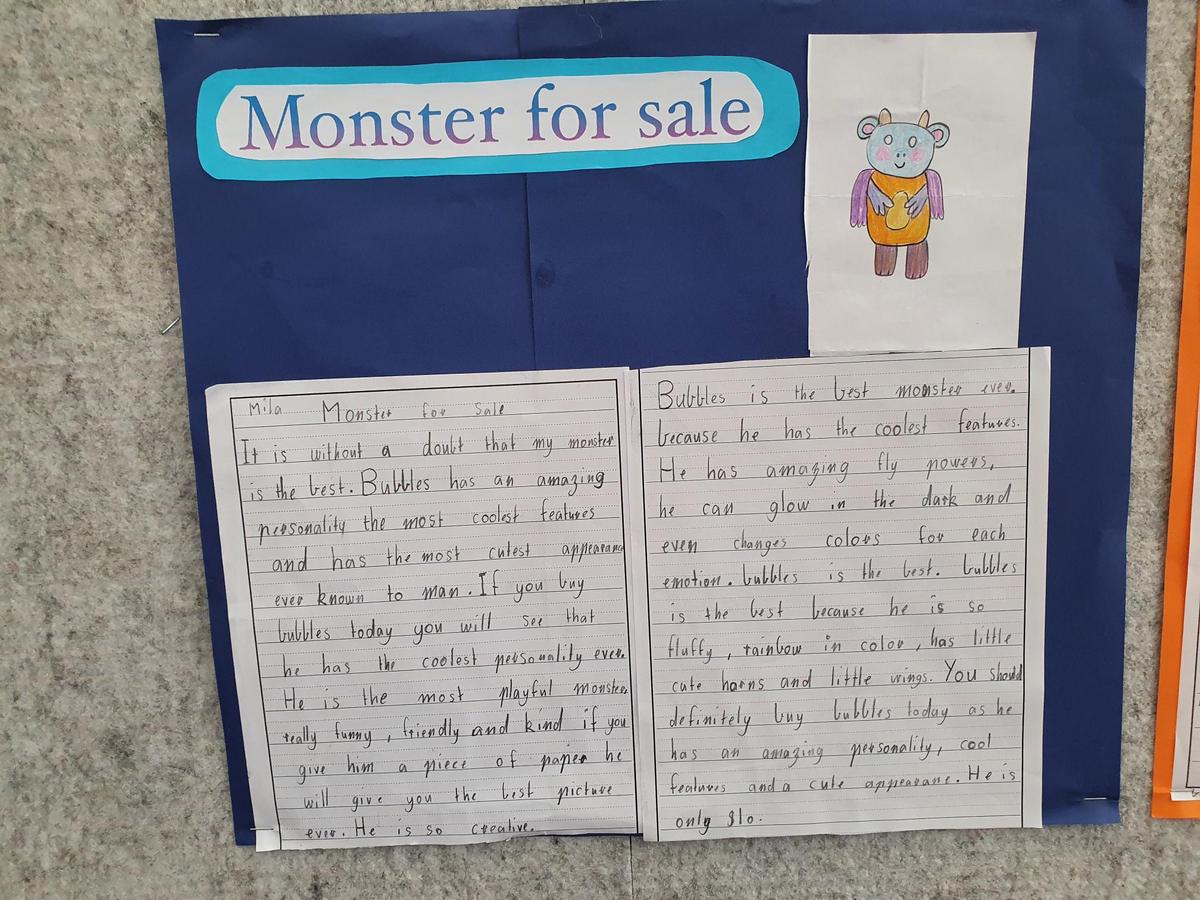 Monster for sale
Mila Monster for Sale
It is without a doubt that my monster
is the best. Bubbles has an amazing
personality the most coolest features
and has the most cutest appearance
ever known to man. If you buy
bubbles today you will see that
he has the coolest personality ever.
He is the most playful monster
really funny, friendly and kind if you
give him a piece of paper he
will give you the best picture
ever. He is so creative.
Bubbles is the best monster ever.
because he has the coolest features.
He has amazing fly powers,
he can glow in the dark and
even changes colors for each
emotion. bubbles is the best. bubbles
is the best because he is so
fluffy, rainbow in color, has little
cute horns and little wings. You should
definitely buy bubbles today as he
has an amazing personality, cool
features and a cute appearane. He is
only $10.